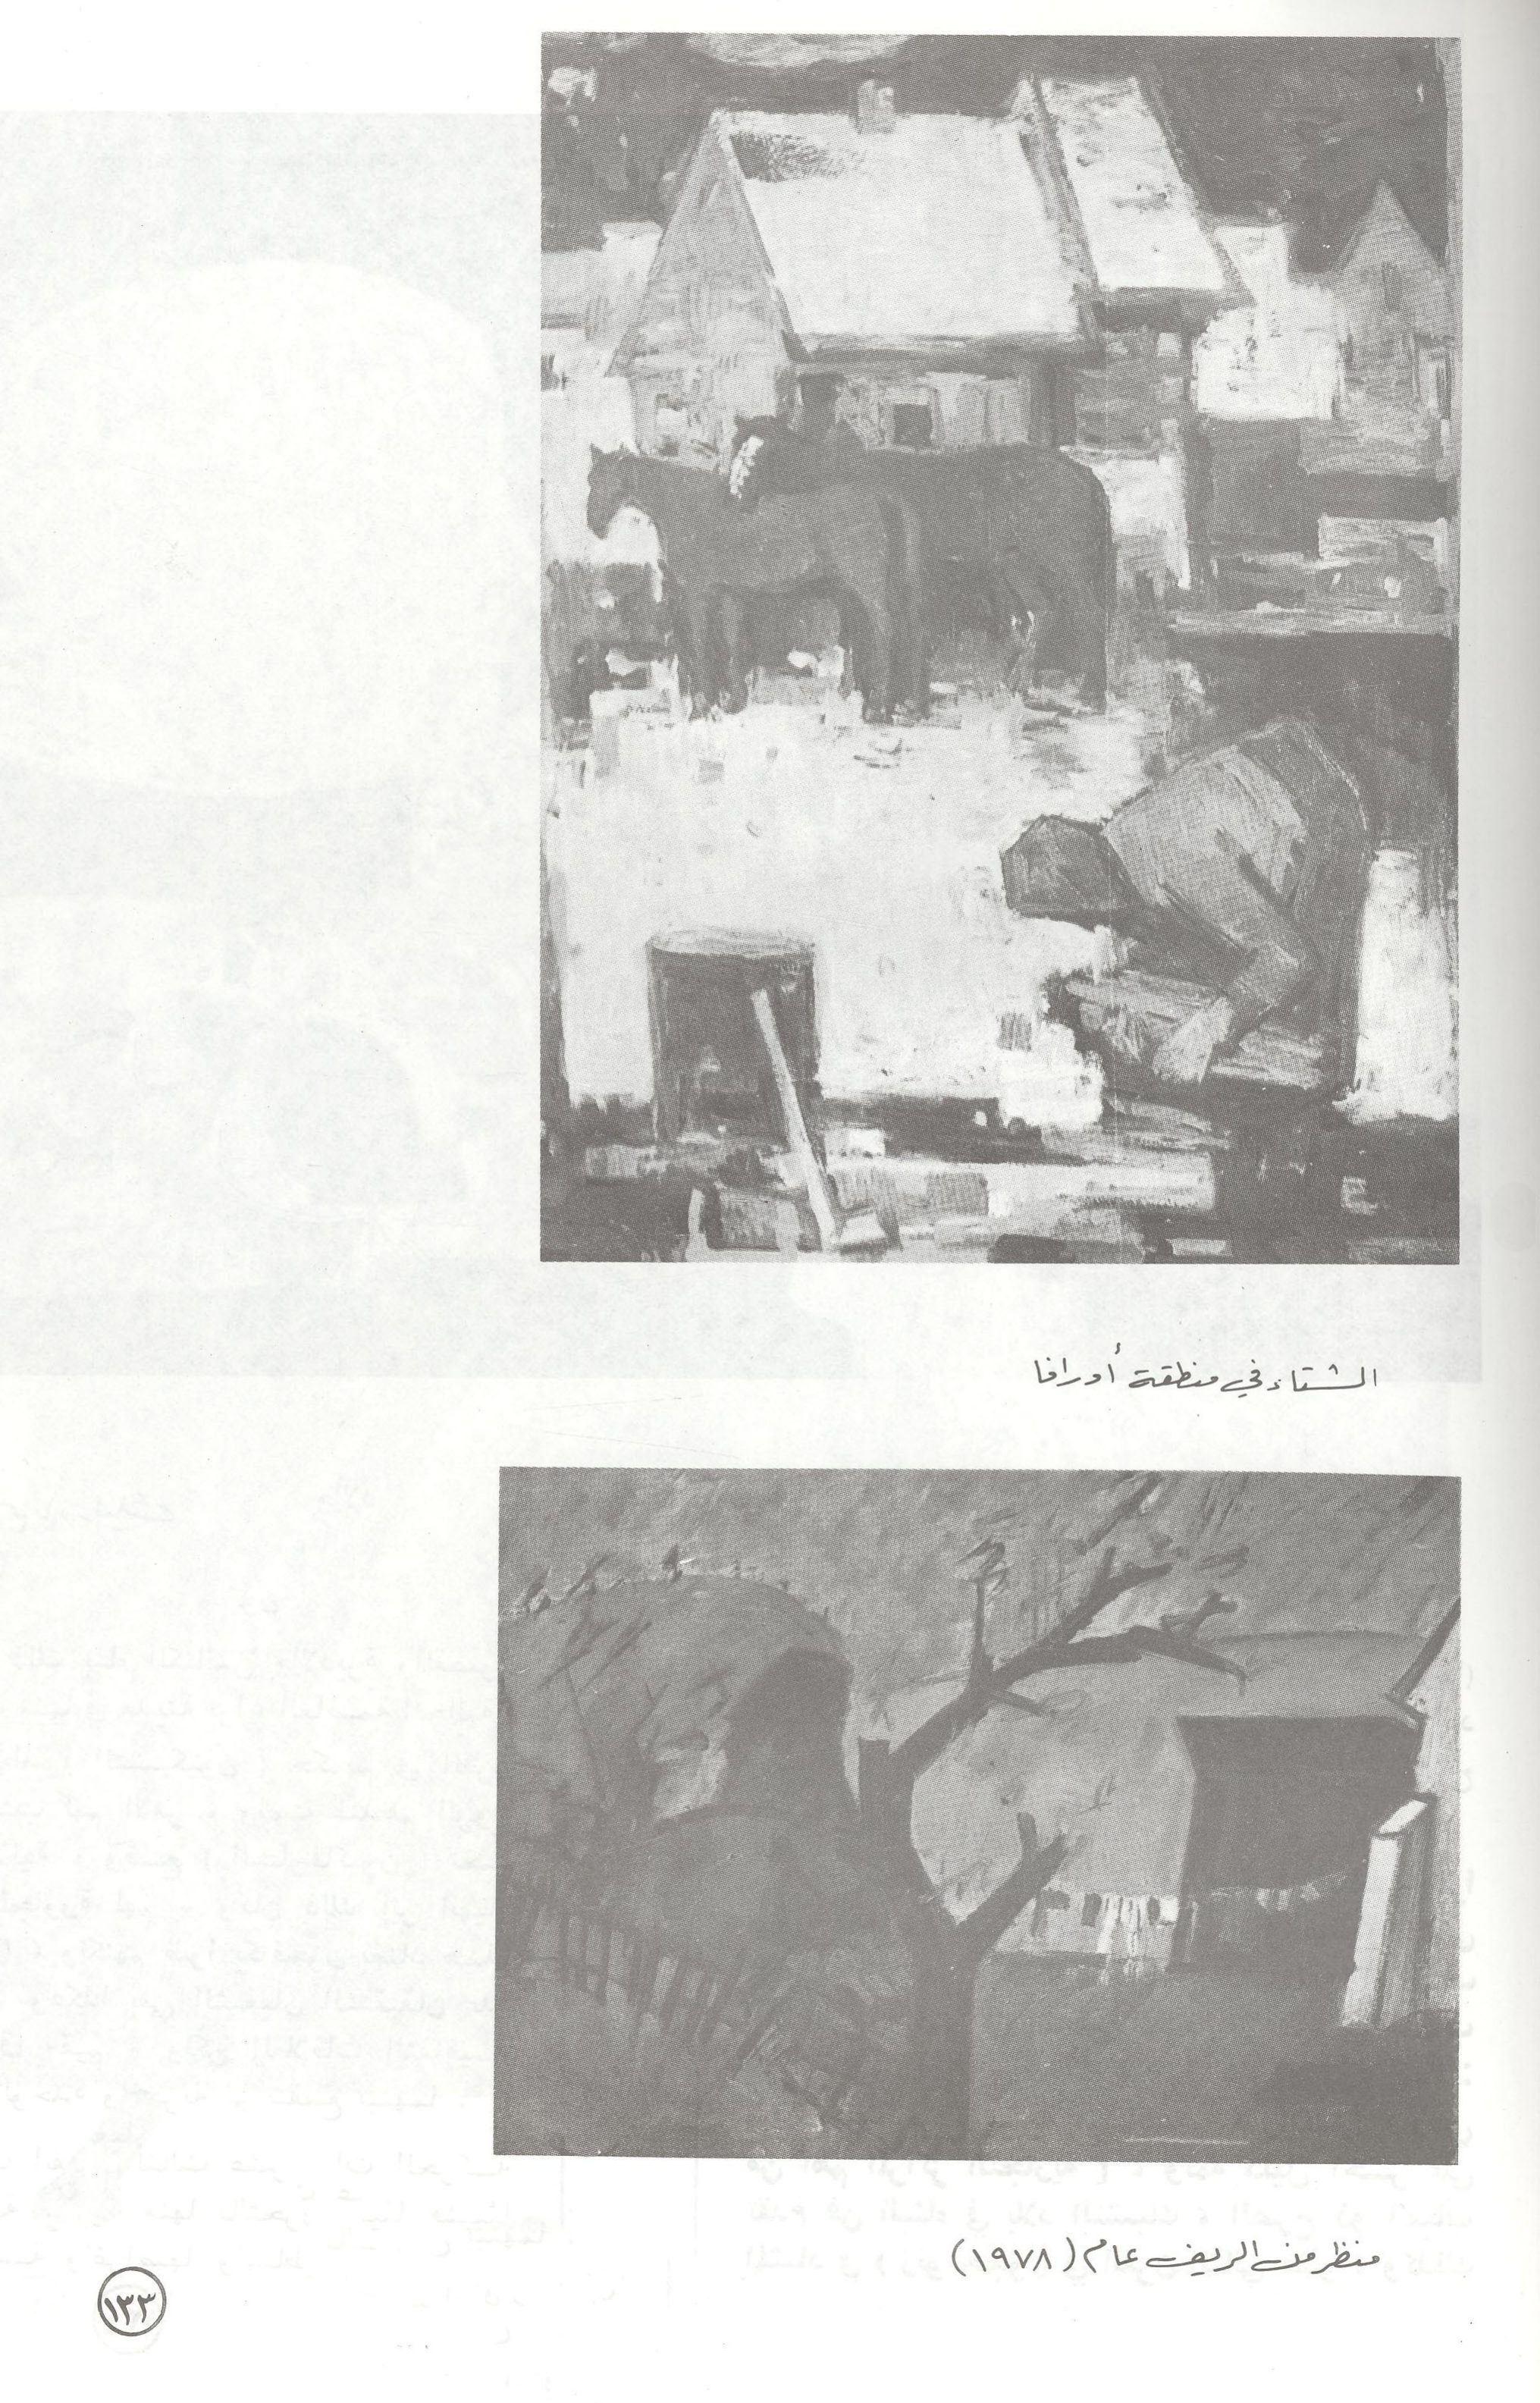 الشتاء في منطقة أورافا
منظر من الريف عام (١٩٧٨)
١٣٣